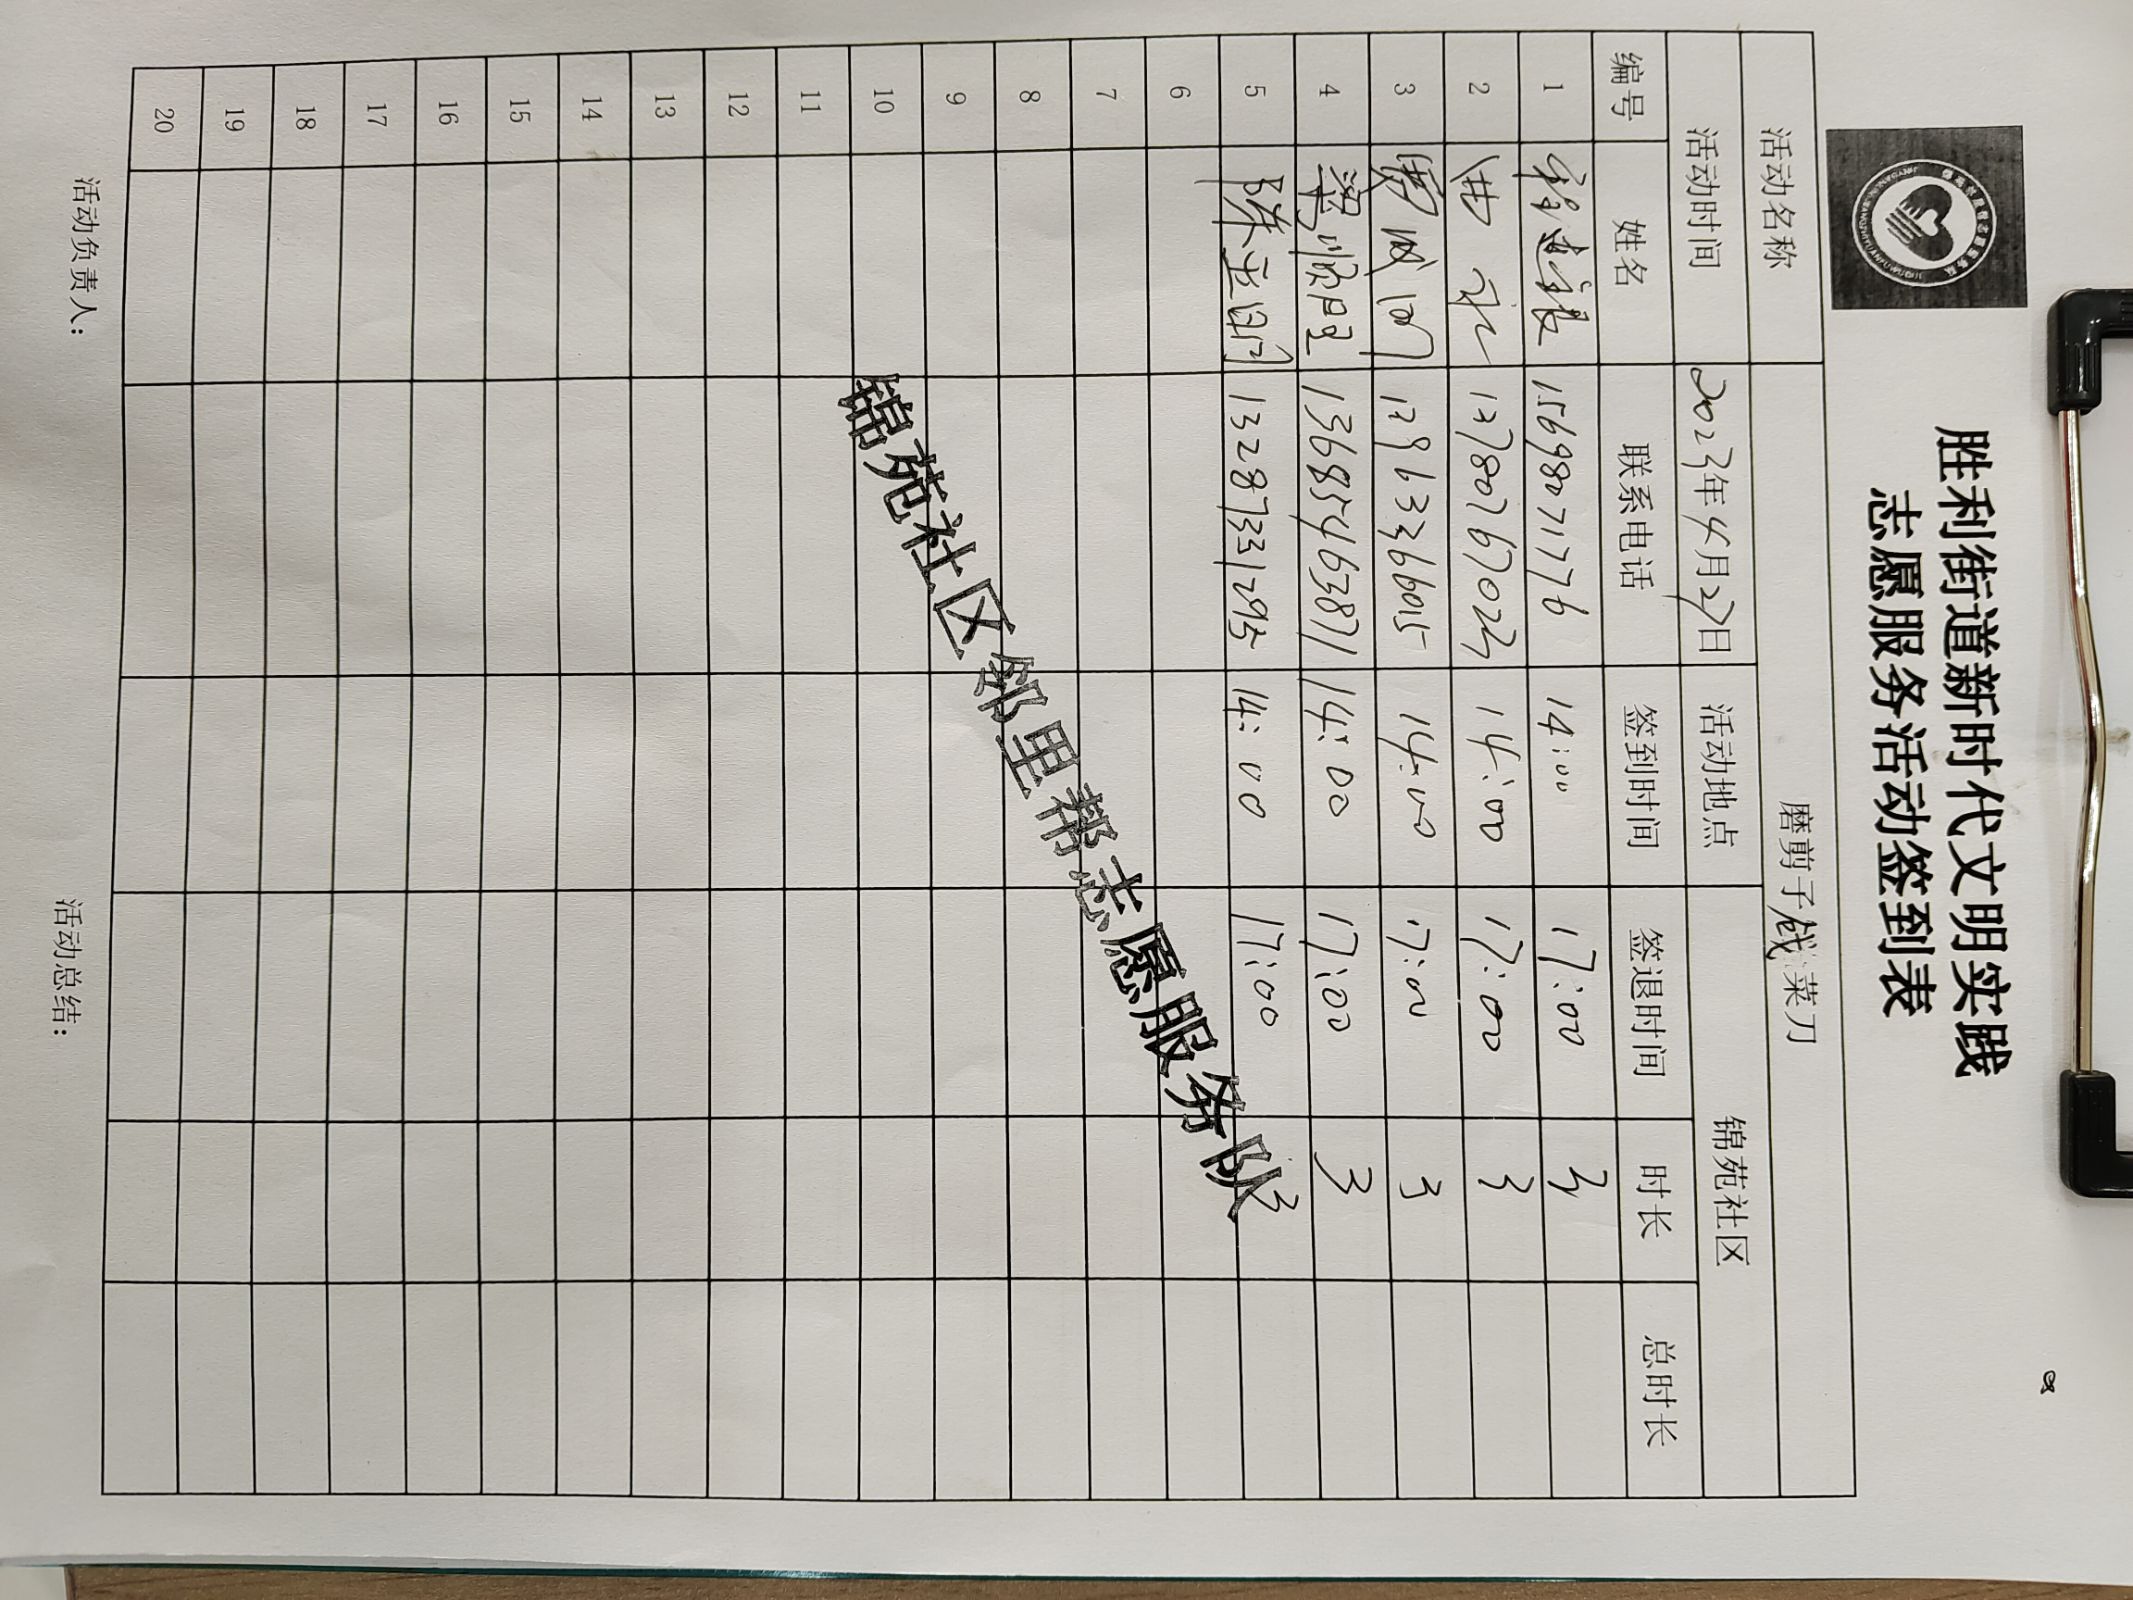 胜利街道新时代文明实践
志愿服务活动签到表
活动名称 磨剪子戗菜刀
活动时间 2023年4月27日 活动地点 锦苑社区
编号 姓名 联系电话 签到时间 签退时间 时长 总时长
1 15698071776 14:00 17:00 3
2 曲 14:00 17:00 3
3 14:00 17:00 3
4 梁顺旺 13685463871 14:00 17:00 3
5 陈 13287331295 14:00 17:00 3
6
7
8
9
10
11
12
13
14
15
16
17
18
19
20
锦苑社区邻里帮志愿服务队
活动负责人： 活动总结：